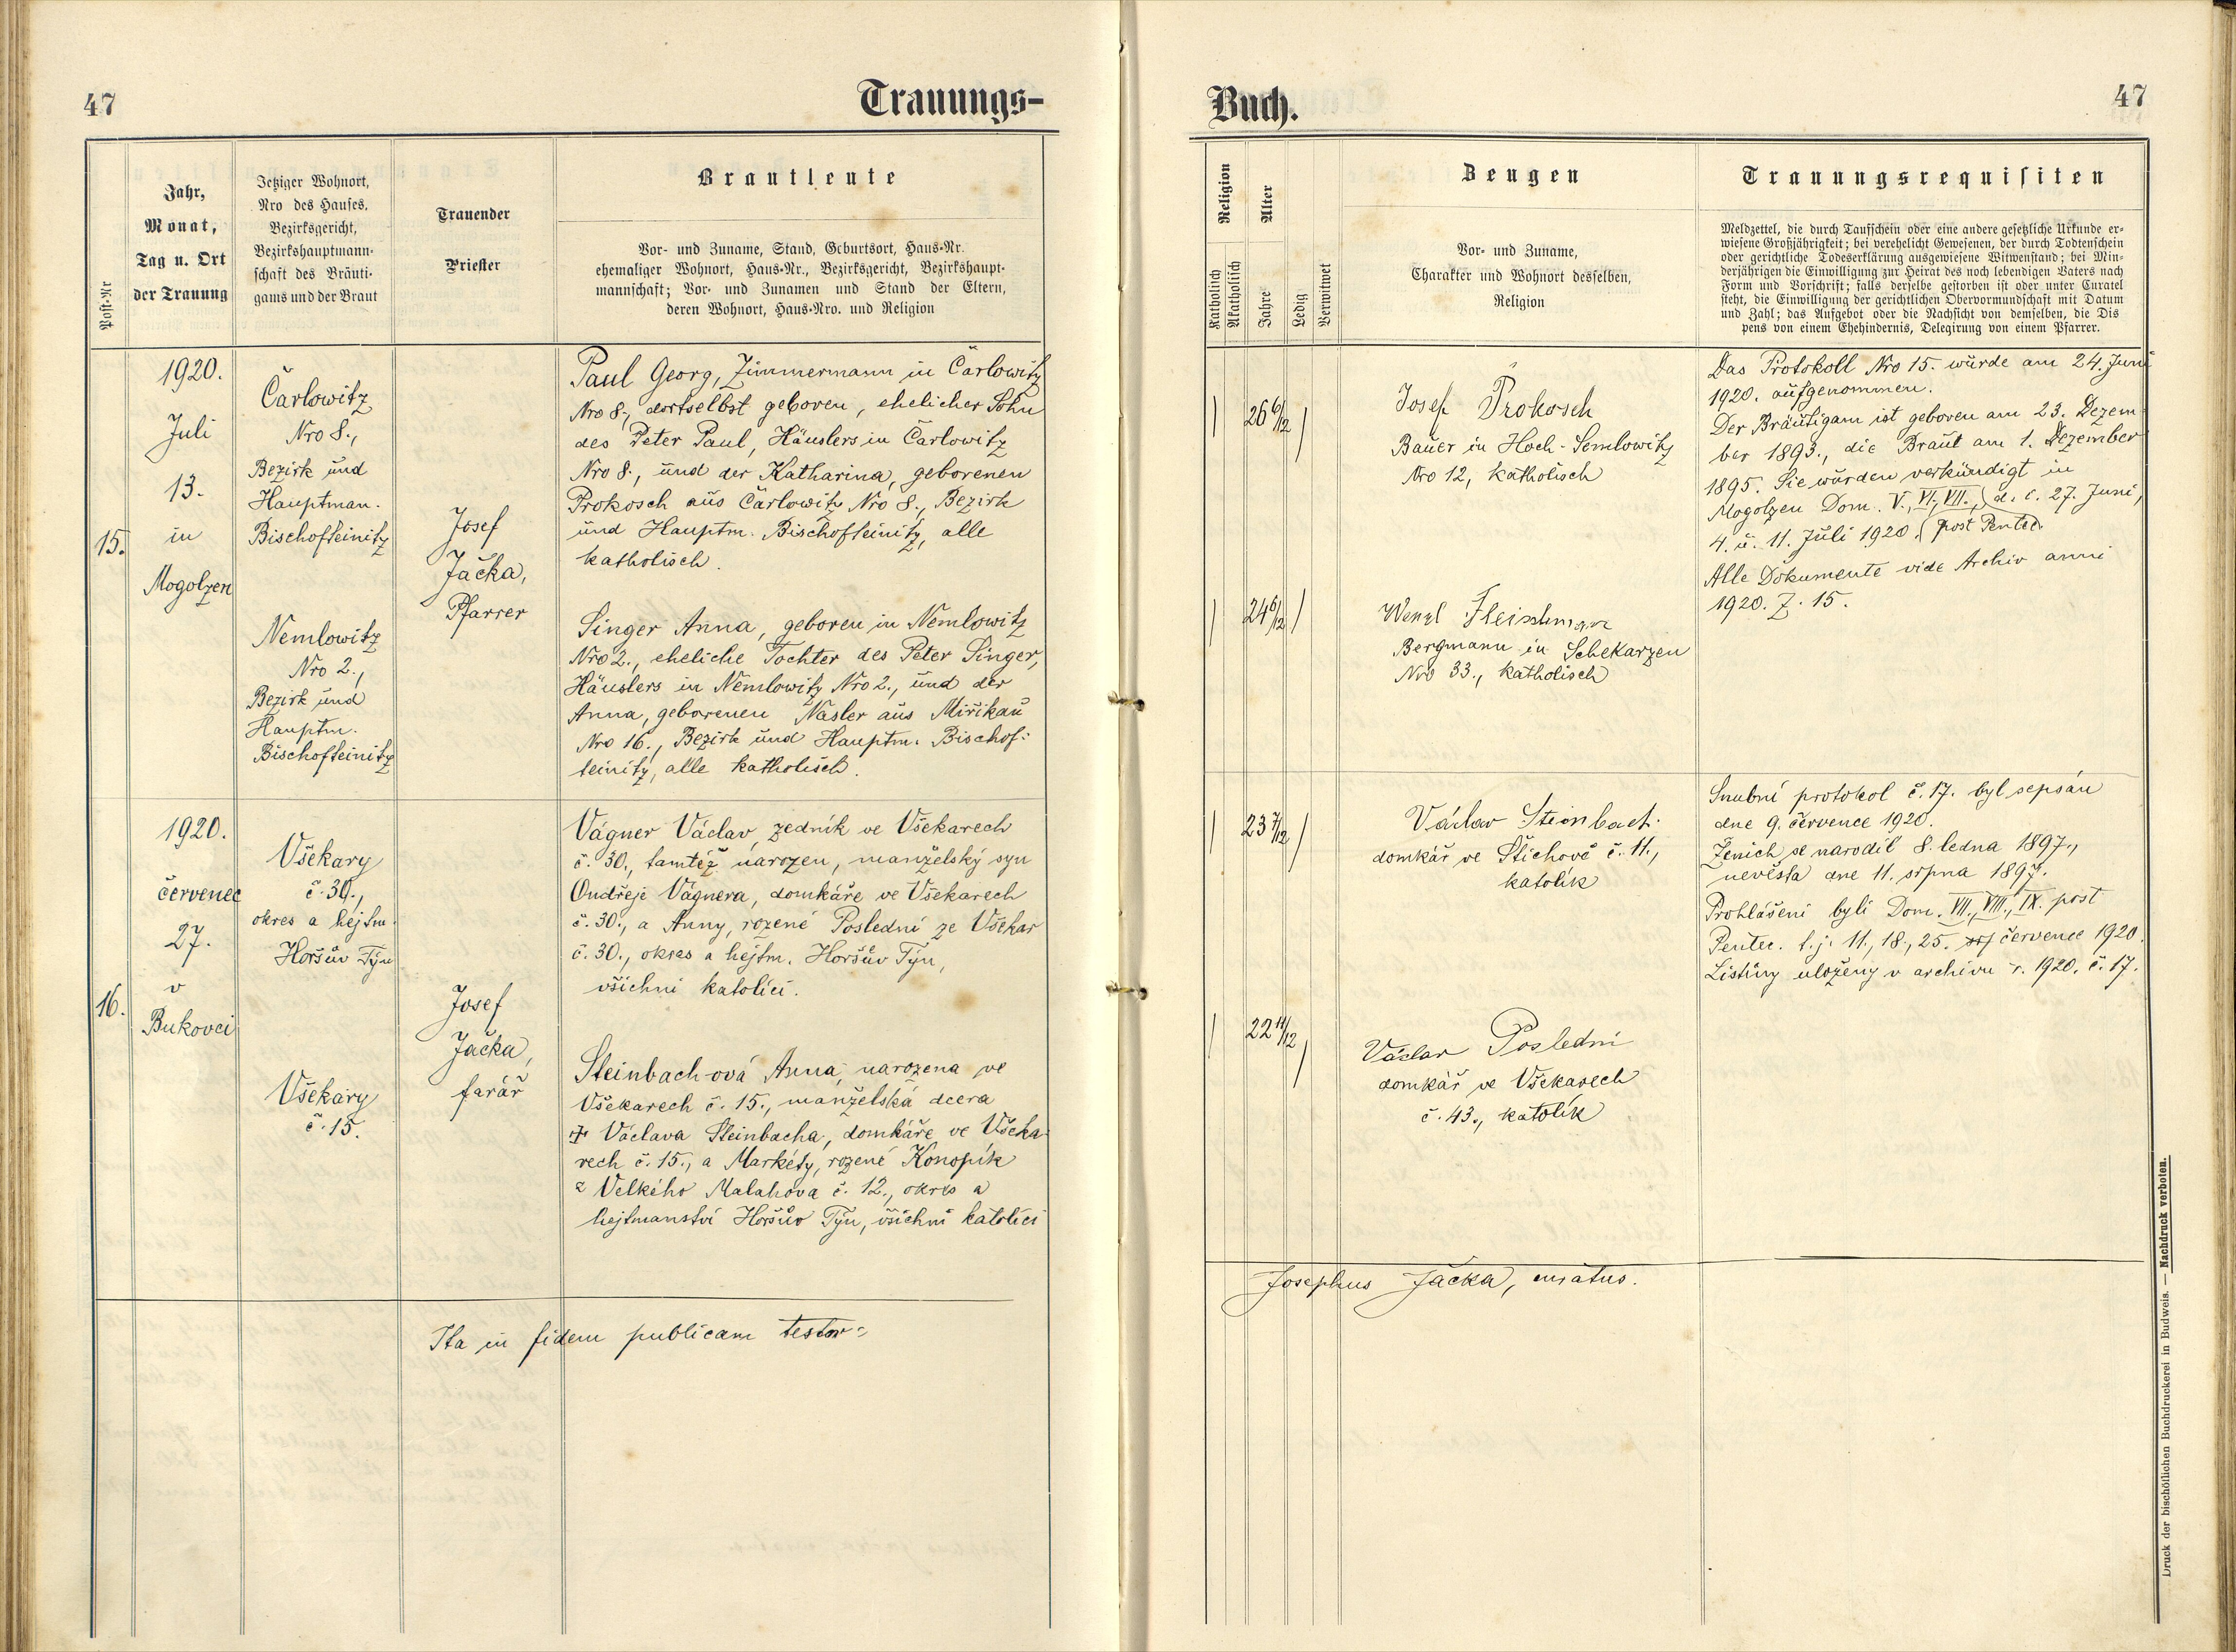 47
Trauungs-
Post-Nr
Jahr,
Monat,
Tag u. Ort
der Trauung
Jetziger Wohnort,
Nro des Hauses,
Bezirksgericht,
Bezirkshauptmann-
schaft des Bräuti-
gams und der Braut
Trauender
Priester
Brautleute
Vor- und Zuname, Stand, Geburtsort, Haus-Nr.
ehemaliger Wohnort, Haus-Nr., Bezirksgericht, Bezirkshaupt-
mannschaft; Vor- und Zunamen und Stand der Eltern,
deren Wohnort, Haus-Nro. und Religion
15.
1920.
Juli
13.
in
Mogolzen
Čarlowitz
Nro 8.,
Bezirk und
Hauptman.
Bischofteinitz
Nemlowitz
Nro 2.,
Bezirk und
Hauptm.
Bischofteinitz
Josef
Jačka,
Pfarrer
Paul Georg, Zimmermann in Čarlowitz
Nro 8., dortselbst geboren, ehelicher Sohn
des Peter Paul, Häuslers in Čarlowitz
Nro 8., und der Katharina, geborenen
Prokosch aus Čarlowitz Nro 8., Bezirk
und Hauptm. Bischofteinitz, alle
katholisch.
Singer Anna, geboren in Nemlowitz
Nro 2., eheliche Tochter des Peter Singer,
Häuslers in Nemlowitz Nro 2., und der
Anna, geborenen Nasler aus Miřikau
Nro 16., Bezirk und Hauptm. Bischof-
teinitz, alle katholisch.
16.
1920.
červenec
27.
v
Bukovci
Všekary
č. 30.,
okres a hejtm.
Horšův Týn
Všekary
č. 15.
Josef
Jačka,
farář
Vágner Václav, zedník ve Všekarech
č. 30., tamtéž narozen, manželský syn
Ondřeje Vágnera, domkáře ve Všekarech
č. 30., a Anny, rozené Poslední ze Všekar
č. 30., okres a hejtm. Horšův Týn,
všichni katolíci.
Steinbach-ová Anna, narozena ve
Všekarech č. 15., manželská dcera
† Václava Steinbacha, domkáře ve Všeka-
rech č. 15., a Markéty, rozené Konopík
z Velkého Malahova č. 12., okres a
hejtmanství Horšův Týn, všichni katolíci
Ita in fidem publicam testor:
Buch.
47
Religion
Katholisch
Akatholisch
Alter
Jahre
Ledig
Verwitwet
Zeugen
Vor- und Zuname,
Charakter und Wohnort desselben,
Religion
Trauungsrequisiten
Meldzettel, die durch Taufschein oder eine andere gesetzliche Urkunde er-
wiesene Großjährigkeit; bei verehelicht Gewesenen, der durch Todtenschein
oder gerichtliche Todeserklärung ausgewiesene Witwenstand; bei Min-
derjährigen die Einwilligung zur Heirat des noch lebendigen Vaters nach
Form und Vorschrift; falls derselbe gestorben ist oder unter Curatel
steht, die Einwilligung der gerichtlichen Obervormundschaft mit Datum
und Zahl; das Aufgebot oder die Nachsicht von demselben, die Dis
pens von einem Ehehindernis, Delegirung von einem Pfarrer.
26 6/12
Josef Prokosch
Bauer in Hoch-Semlowitz
Nro 12, katholisch
24 6/12
Wenzl Fleischman
Bergmann in Schekarzen
Nro 33., katholisch
Das Protokoll Nro 15. wurde am 24. Juni
1920. aufgenommen.
Der Bräutigam ist geboren am 23. Dezem-
ber 1893., die Braut am 1. Dezember
1895. Sie wurden verkündigt in
Mogolzen Dom. V., VI., VII., d. i. 27. Juni,
4. u. 11. Juli 1920. (post Pentec.
Alle Dokumente vide Archiv anni
1920. Z. 15.
23 7/12
Václav Steinbach
domkář ve Štichově č. 11.,
katolík
22 11/12
Václav Poslední
domkář ve Všekarech
č. 43., katolík
Snubní protokol č. 17. byl sepsán
dne 9. července 1920.
Ženich se narodil 8. ledna 1897.,
nevěsta dne 11. srpna 1897.
Prohlášeni byli Dom. VII., VIII., IX. post
Pentec. t. j. 11., 18., 25. červenec 1920.
Listiny uloženy v archivu r. 1920. č. 17.
Josephus Jačka, curatus.
Druck der bischöflichen Buchdruckerei in Budweis. — Nachdruck verboten.